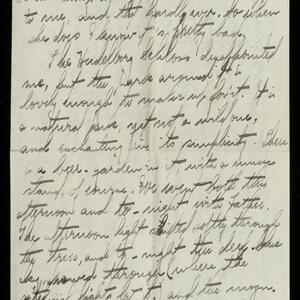 to me, and she hardly ever. So when
she does I know it is pretty bad.
The Heidelberg Schloss disappointed
me, but the park around it is
lovely enough to make up for it. It is
a natural park, yet not a wild one,
and enchanting in its simplicity. There
is a beer-garden in it, with a music
stand, of course. We went both this
afternoon and to-night with father.
The afternoon light sifted softly through
the trees, and to-night the deep blue
sky showed through where the
lights let it, and the moon